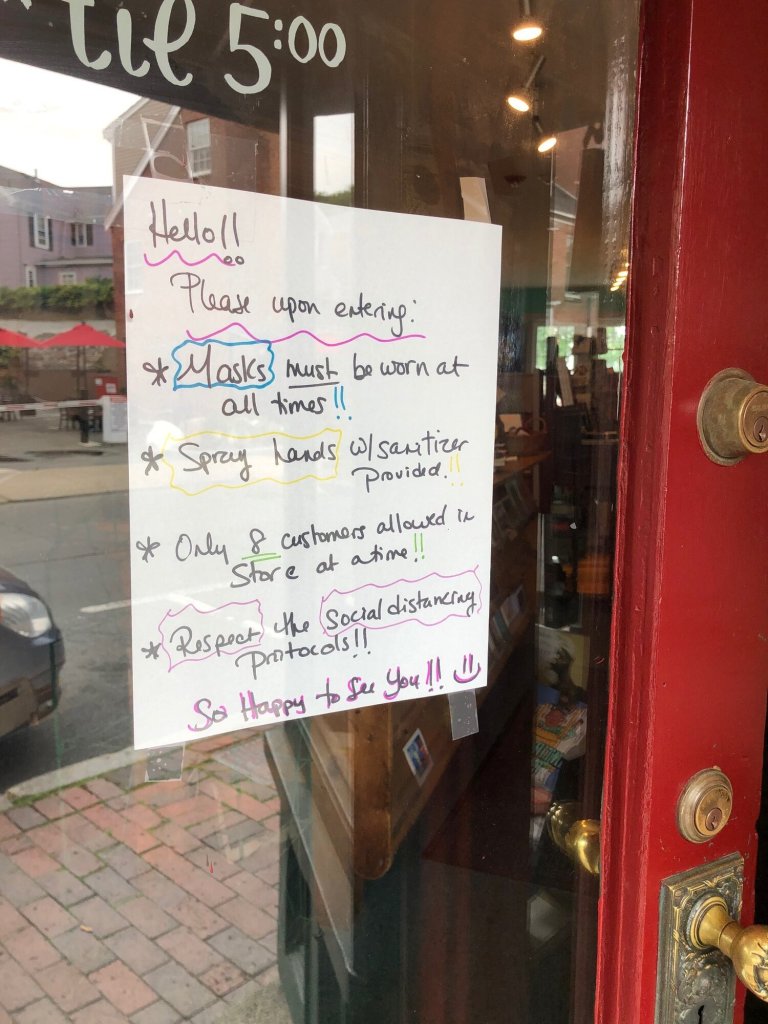 til 5:00
Hello!!
Please upon entering:
* Masks must be worn at
all times!!
* Spray hands w/sanitizer
provided.!!
* Only 8 customers allowed in
store at a time!!
* Respect the Social distancing
protocols!!
So Happy to See You!!